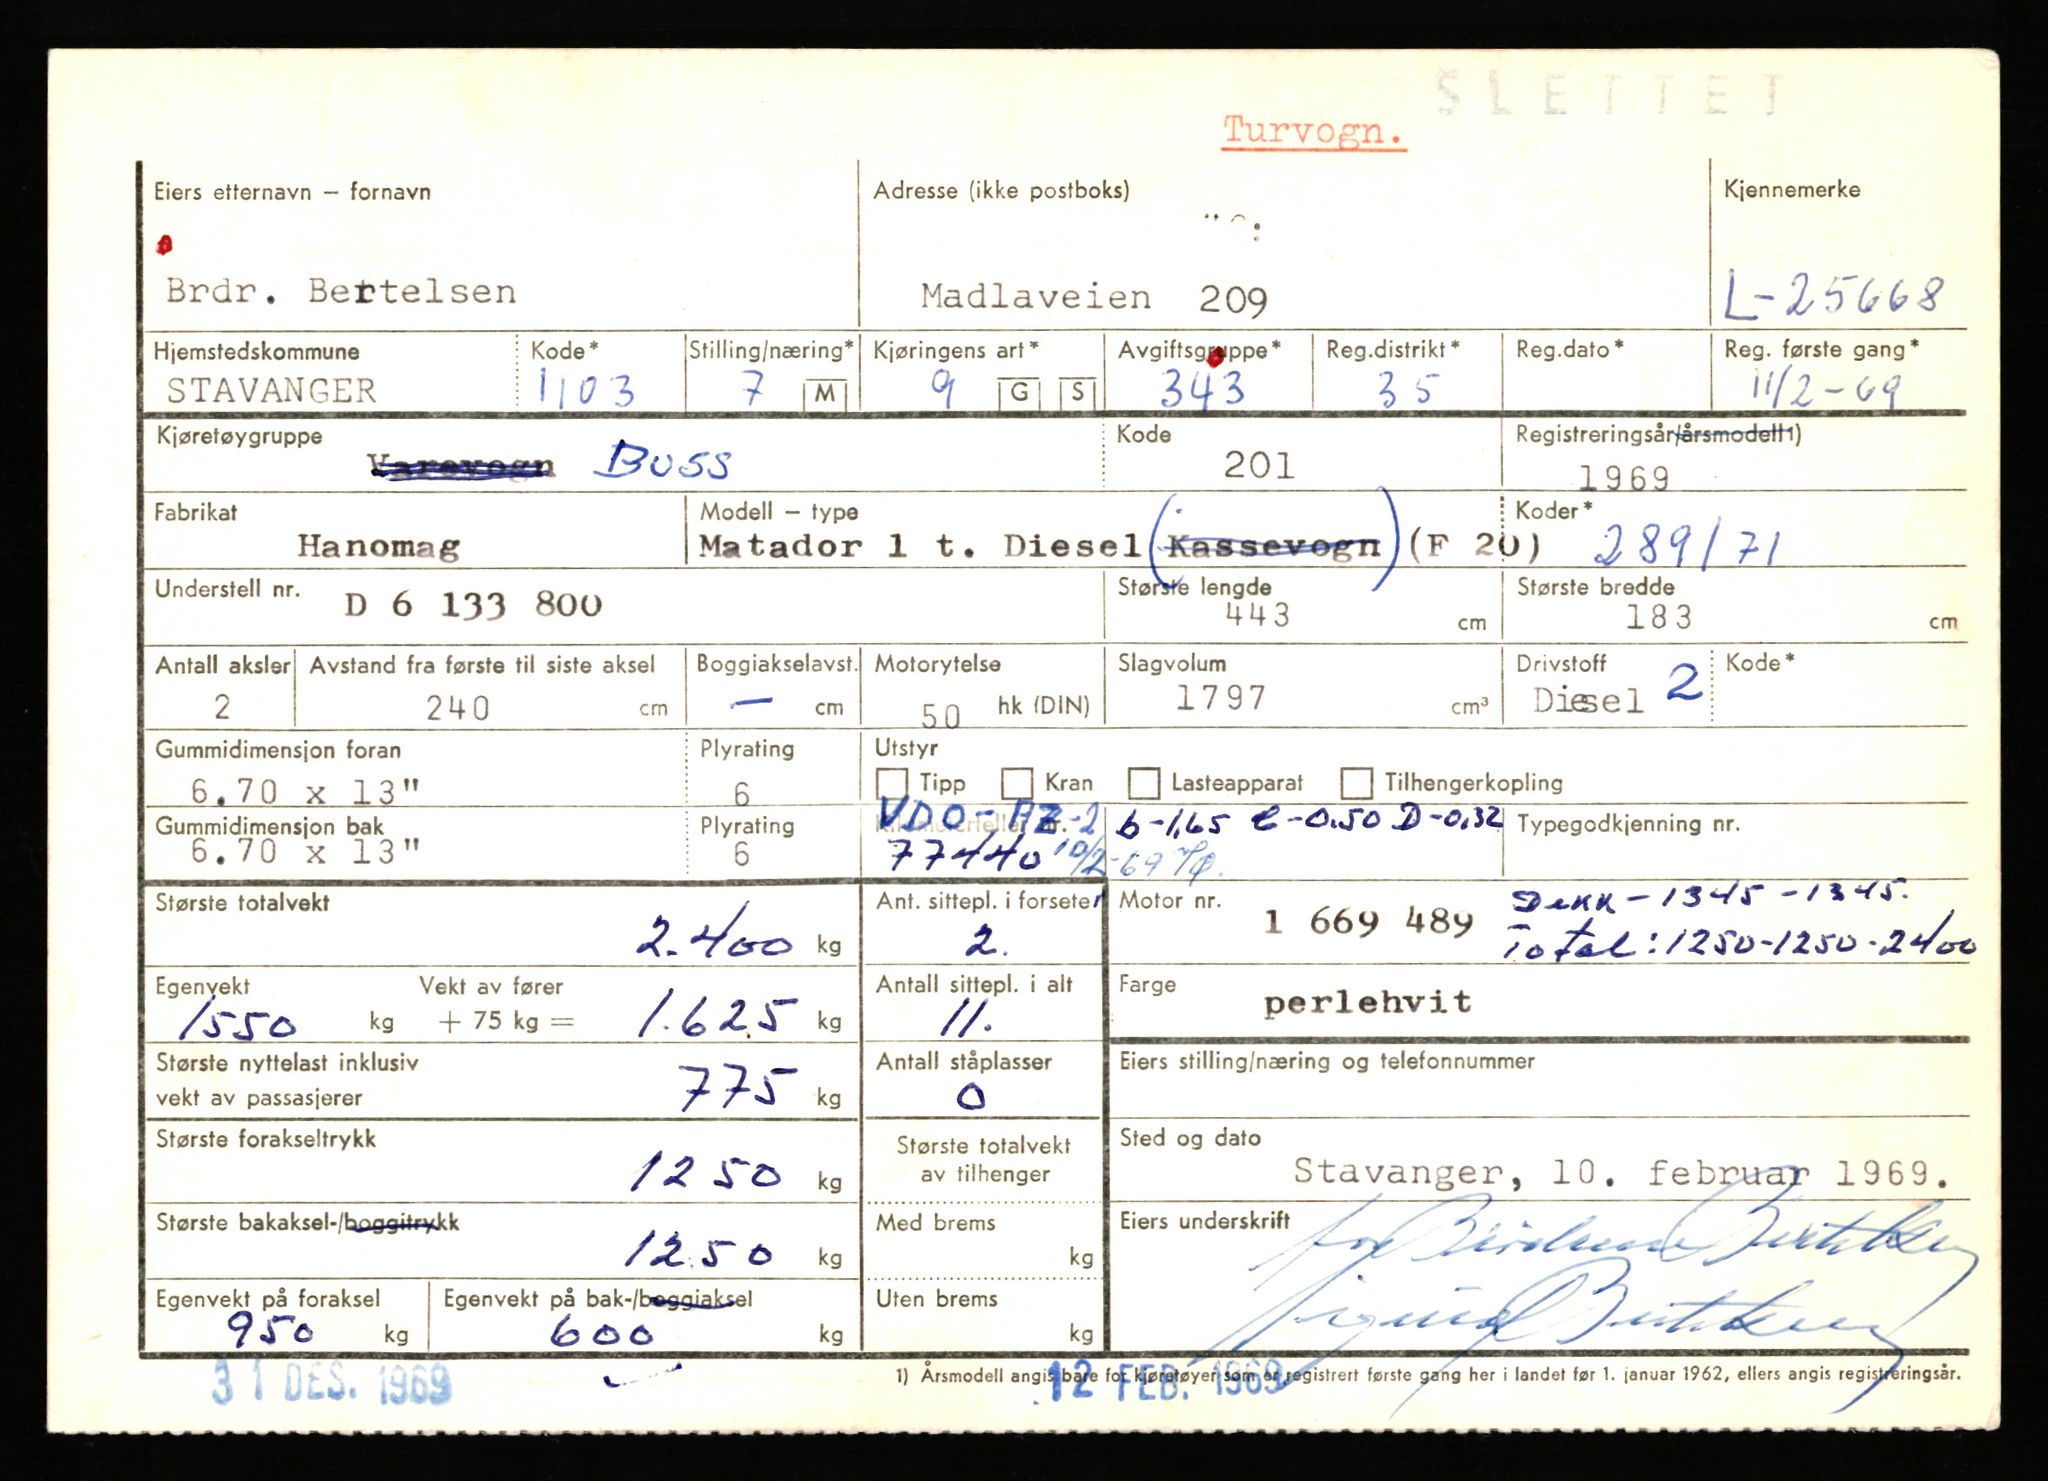 SLETTET
Turvogn.
Eiers etternavn – fornavn
Adresse (ikke postboks)
Kjennemerke
Brdr. Bertelsen
Madlaveien 209
L-25668
Hjemstedskommune
Kode*
Stilling/næring*
Kjøringens art*
Avgiftsgruppe*
Reg.distrikt*
Reg.dato*
Reg. første gang*
STAVANGER
1103
7 M
9 G S
343
35
11/2-69
Kjøretøygruppe
Kode
Registreringsår/årsmodell1)
Varevogn Buss
201
1969
Fabrikat
Modell – type
Koder*
Hanomag
Matador 1 t. Diesel (Kassevogn) (F 20)
289/71
Understell nr.
D 6 133 800
Største lengde
443 cm
Største bredde
183 cm
Antall aksler
Avstand fra første til siste aksel
Boggiakselavst.
Motorytelse
Slagvolum
Drivstoff
Kode*
2
240 cm
– cm
50 hk (DIN)
1797 cm³
Diesel 2
Gummidimensjon foran
Plyrating
Utstyr
6.70 x 13"
6
Tipp
Kran
Lasteapparat
Tilhengerkopling
Gummidimensjon bak
Plyrating
VDO-
b-1,65 C-0,50 D-0,32
Typegodkjenning nr.
6.70 x 13"
6
77440 10/2-69
Største totalvekt
2.400 kg
Ant. sittepl. i forsetet
2.
Motor nr.
1 669 489
Dekk-1345-1345.
Total: 1250-1250-2400
Egenvekt
1550 kg
Vekt av fører
+ 75 kg =
1.625 kg
Antall sittepl. i alt
11.
Farge
perlehvit
Største nyttelast inklusiv
vekt av passasjerer
775 kg
Antall ståplasser
0
Eiers stilling/næring og telefonnummer
Største forakseltrykk
1250 kg
Største totalvekt
av tilhenger
Sted og dato
Stavanger, 10. februar 1969.
Største bakaksel-/boggitrykk
1250 kg
Med brems
kg
Eiers underskrift
for Brødrene Bertelsen
Sigurd Bertelsen
Egenvekt på foraksel
950 kg
Egenvekt på bak-/boggiaksel
600 kg
Uten brems
kg
31 DES. 1969
12 FEB. 1969
1) Årsmodell angis bare for kjøretøyer som er registrert første gang her i landet før 1. januar 1962, ellers angis registreringsår.